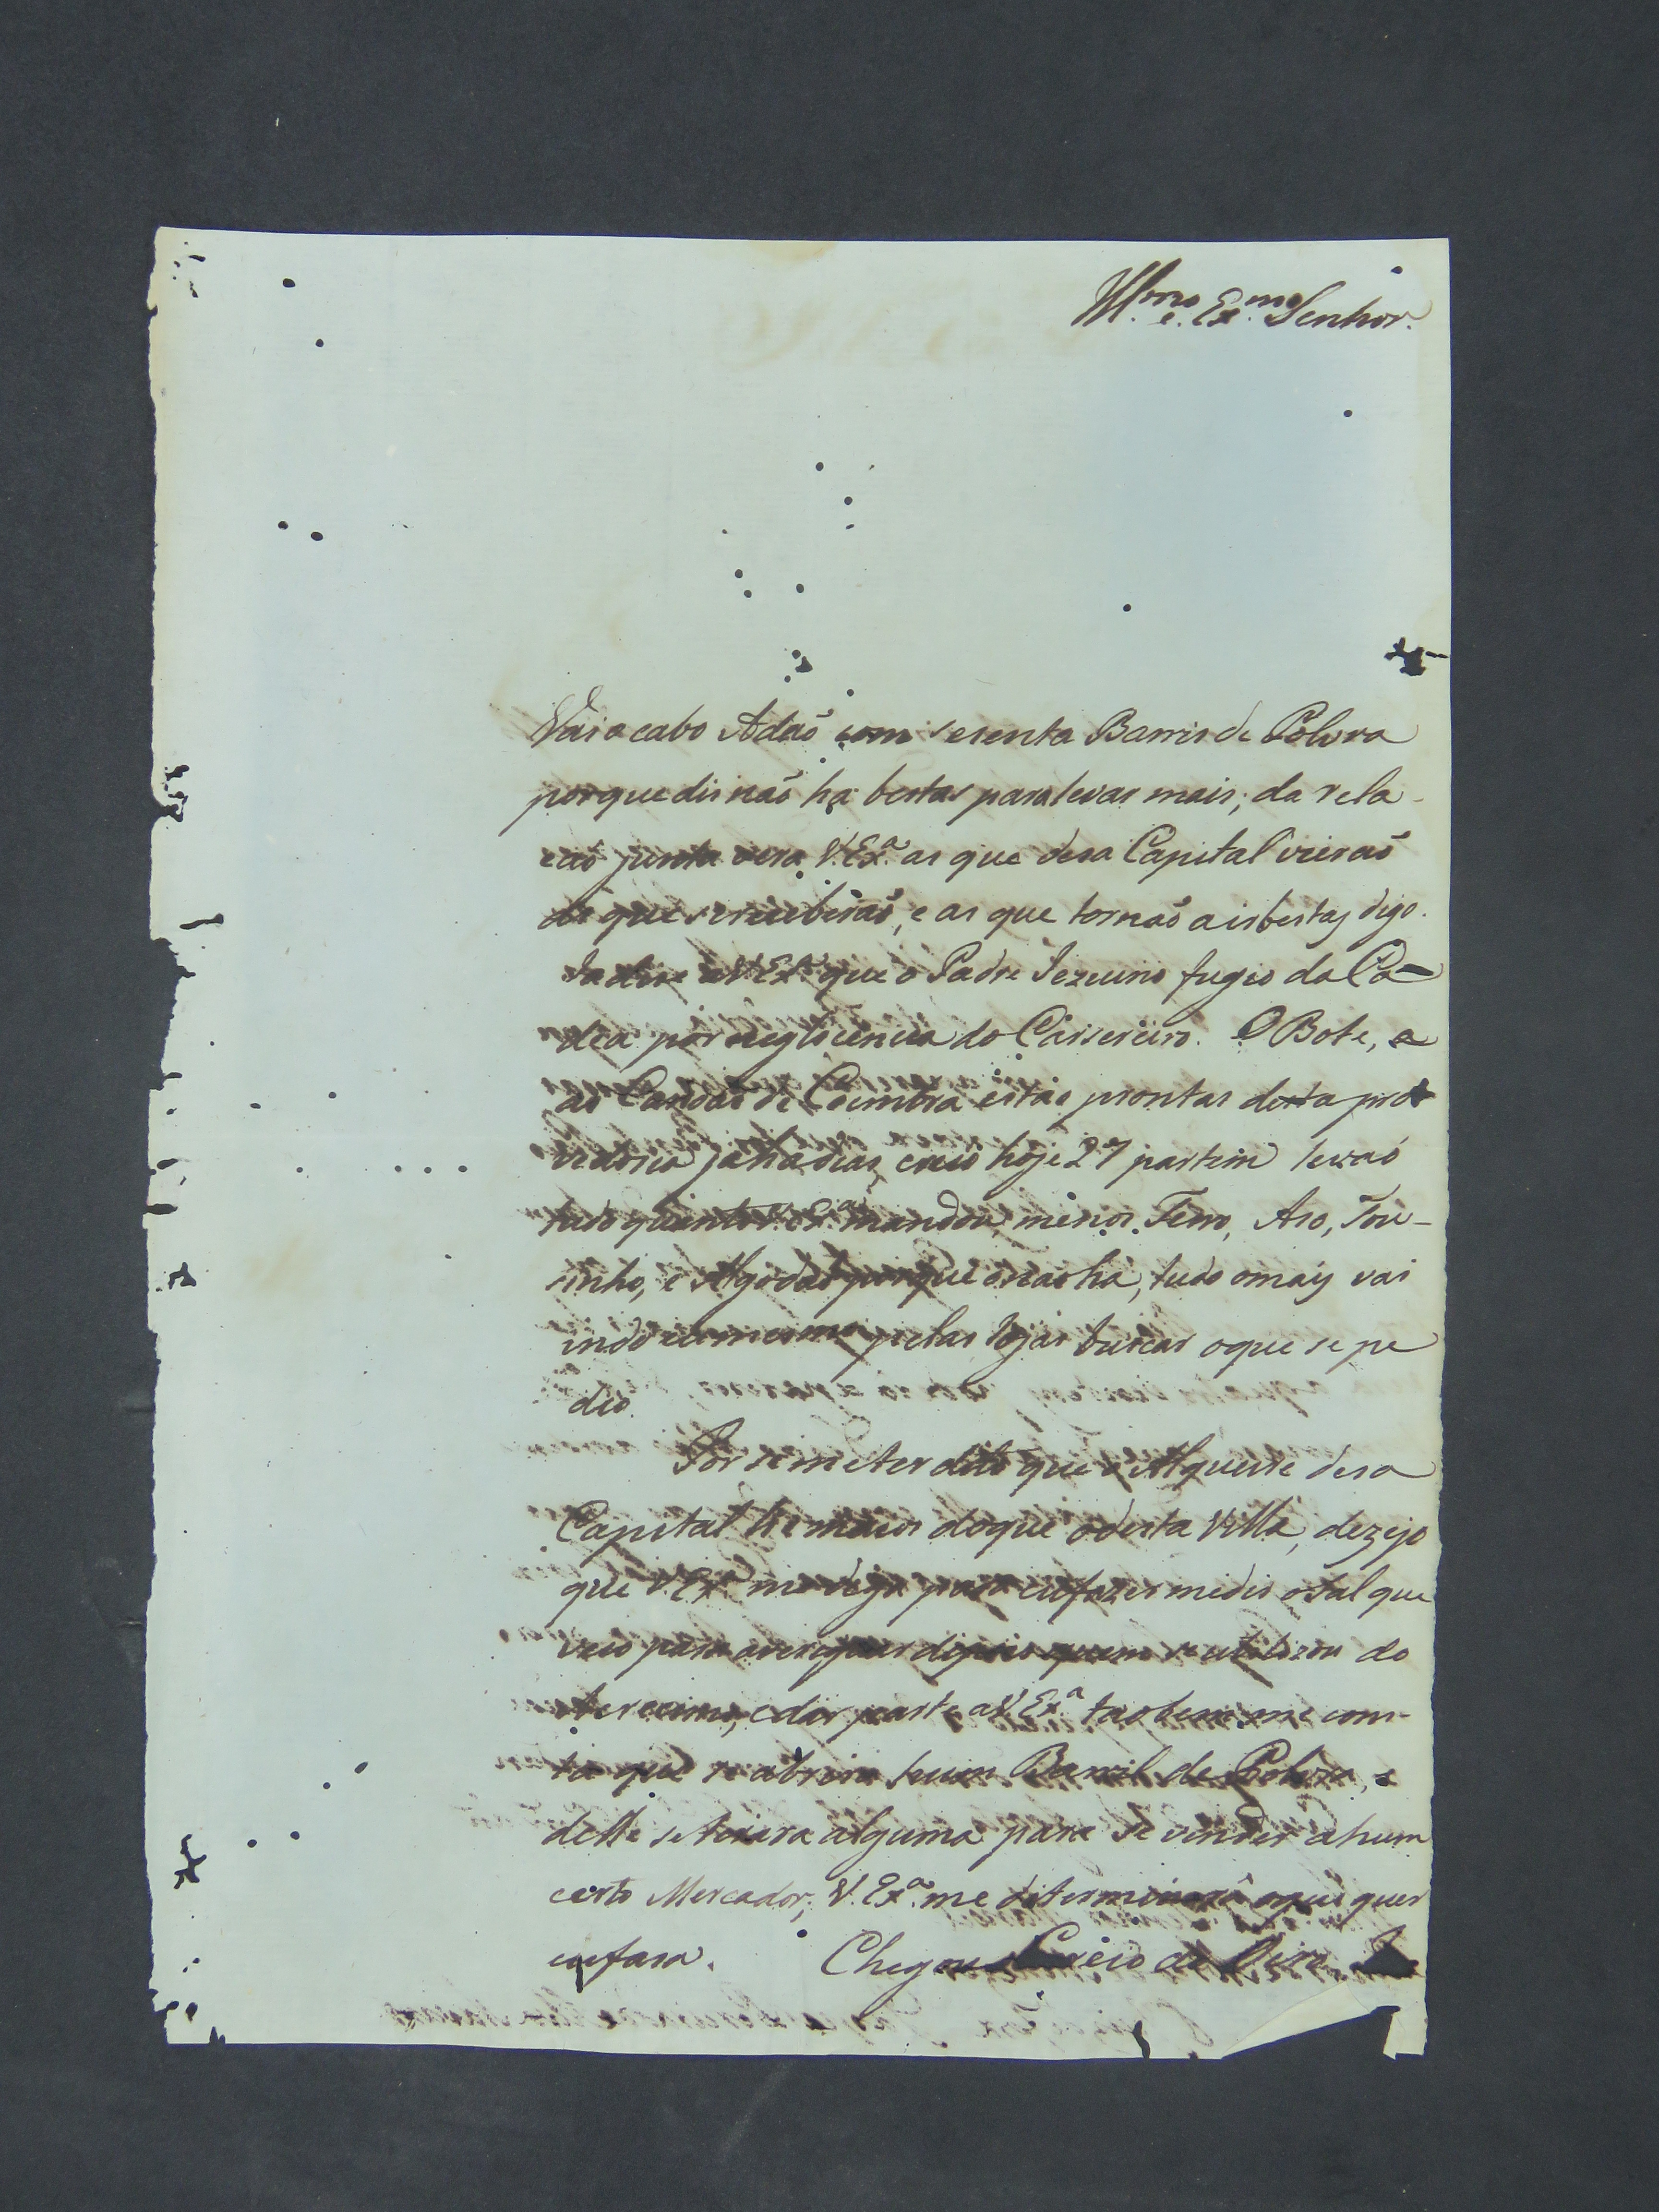 Ill.mo e. Ex.mo Senhor.
Vai o cabo Adaõ com secenta Barris de Polvra
porque dis naõ ha bestas para levar mais; da rela-
caõ junta vera V. Ex.ª as que desa Capital vieraõ
as que se receberaõ, e as que tornaõ a ir bestas digo.
Ja dice a V. Ex.ª que o Padre Jezuino fugio da Ca-
dea por neglicencia do Carsereiro. O Bote, e
as Canoas de Coimbra estaõ prontas desta pro
vedoria ja ha dias, creio hoje 27 partem levaõ
tudo quanto V. Ex.ª mandou, menos Ferro, Aso, Tou-
sinho, e Algodaõ porque o naõ ha, tudo o mais vai
indo eu mesmo pelas lojas buscar o que se pe
dio.
Por se me ter dito que o Alqueire desa
Capital he maior do que o desta Villa, dezejo
que V. Ex.ª me diga para eu fazer medir o sal que
veio para averiguar depois quem se utilizou do
acrecimo, e dar parte a V. Ex.ª taobem me cons-
ta que se abrira hum Barril de Polvra, e
delle se tirara alguma para se vender a hum
certo Mercador; V. Ex.ª me determinará o que quer
eu fasa. Chegou